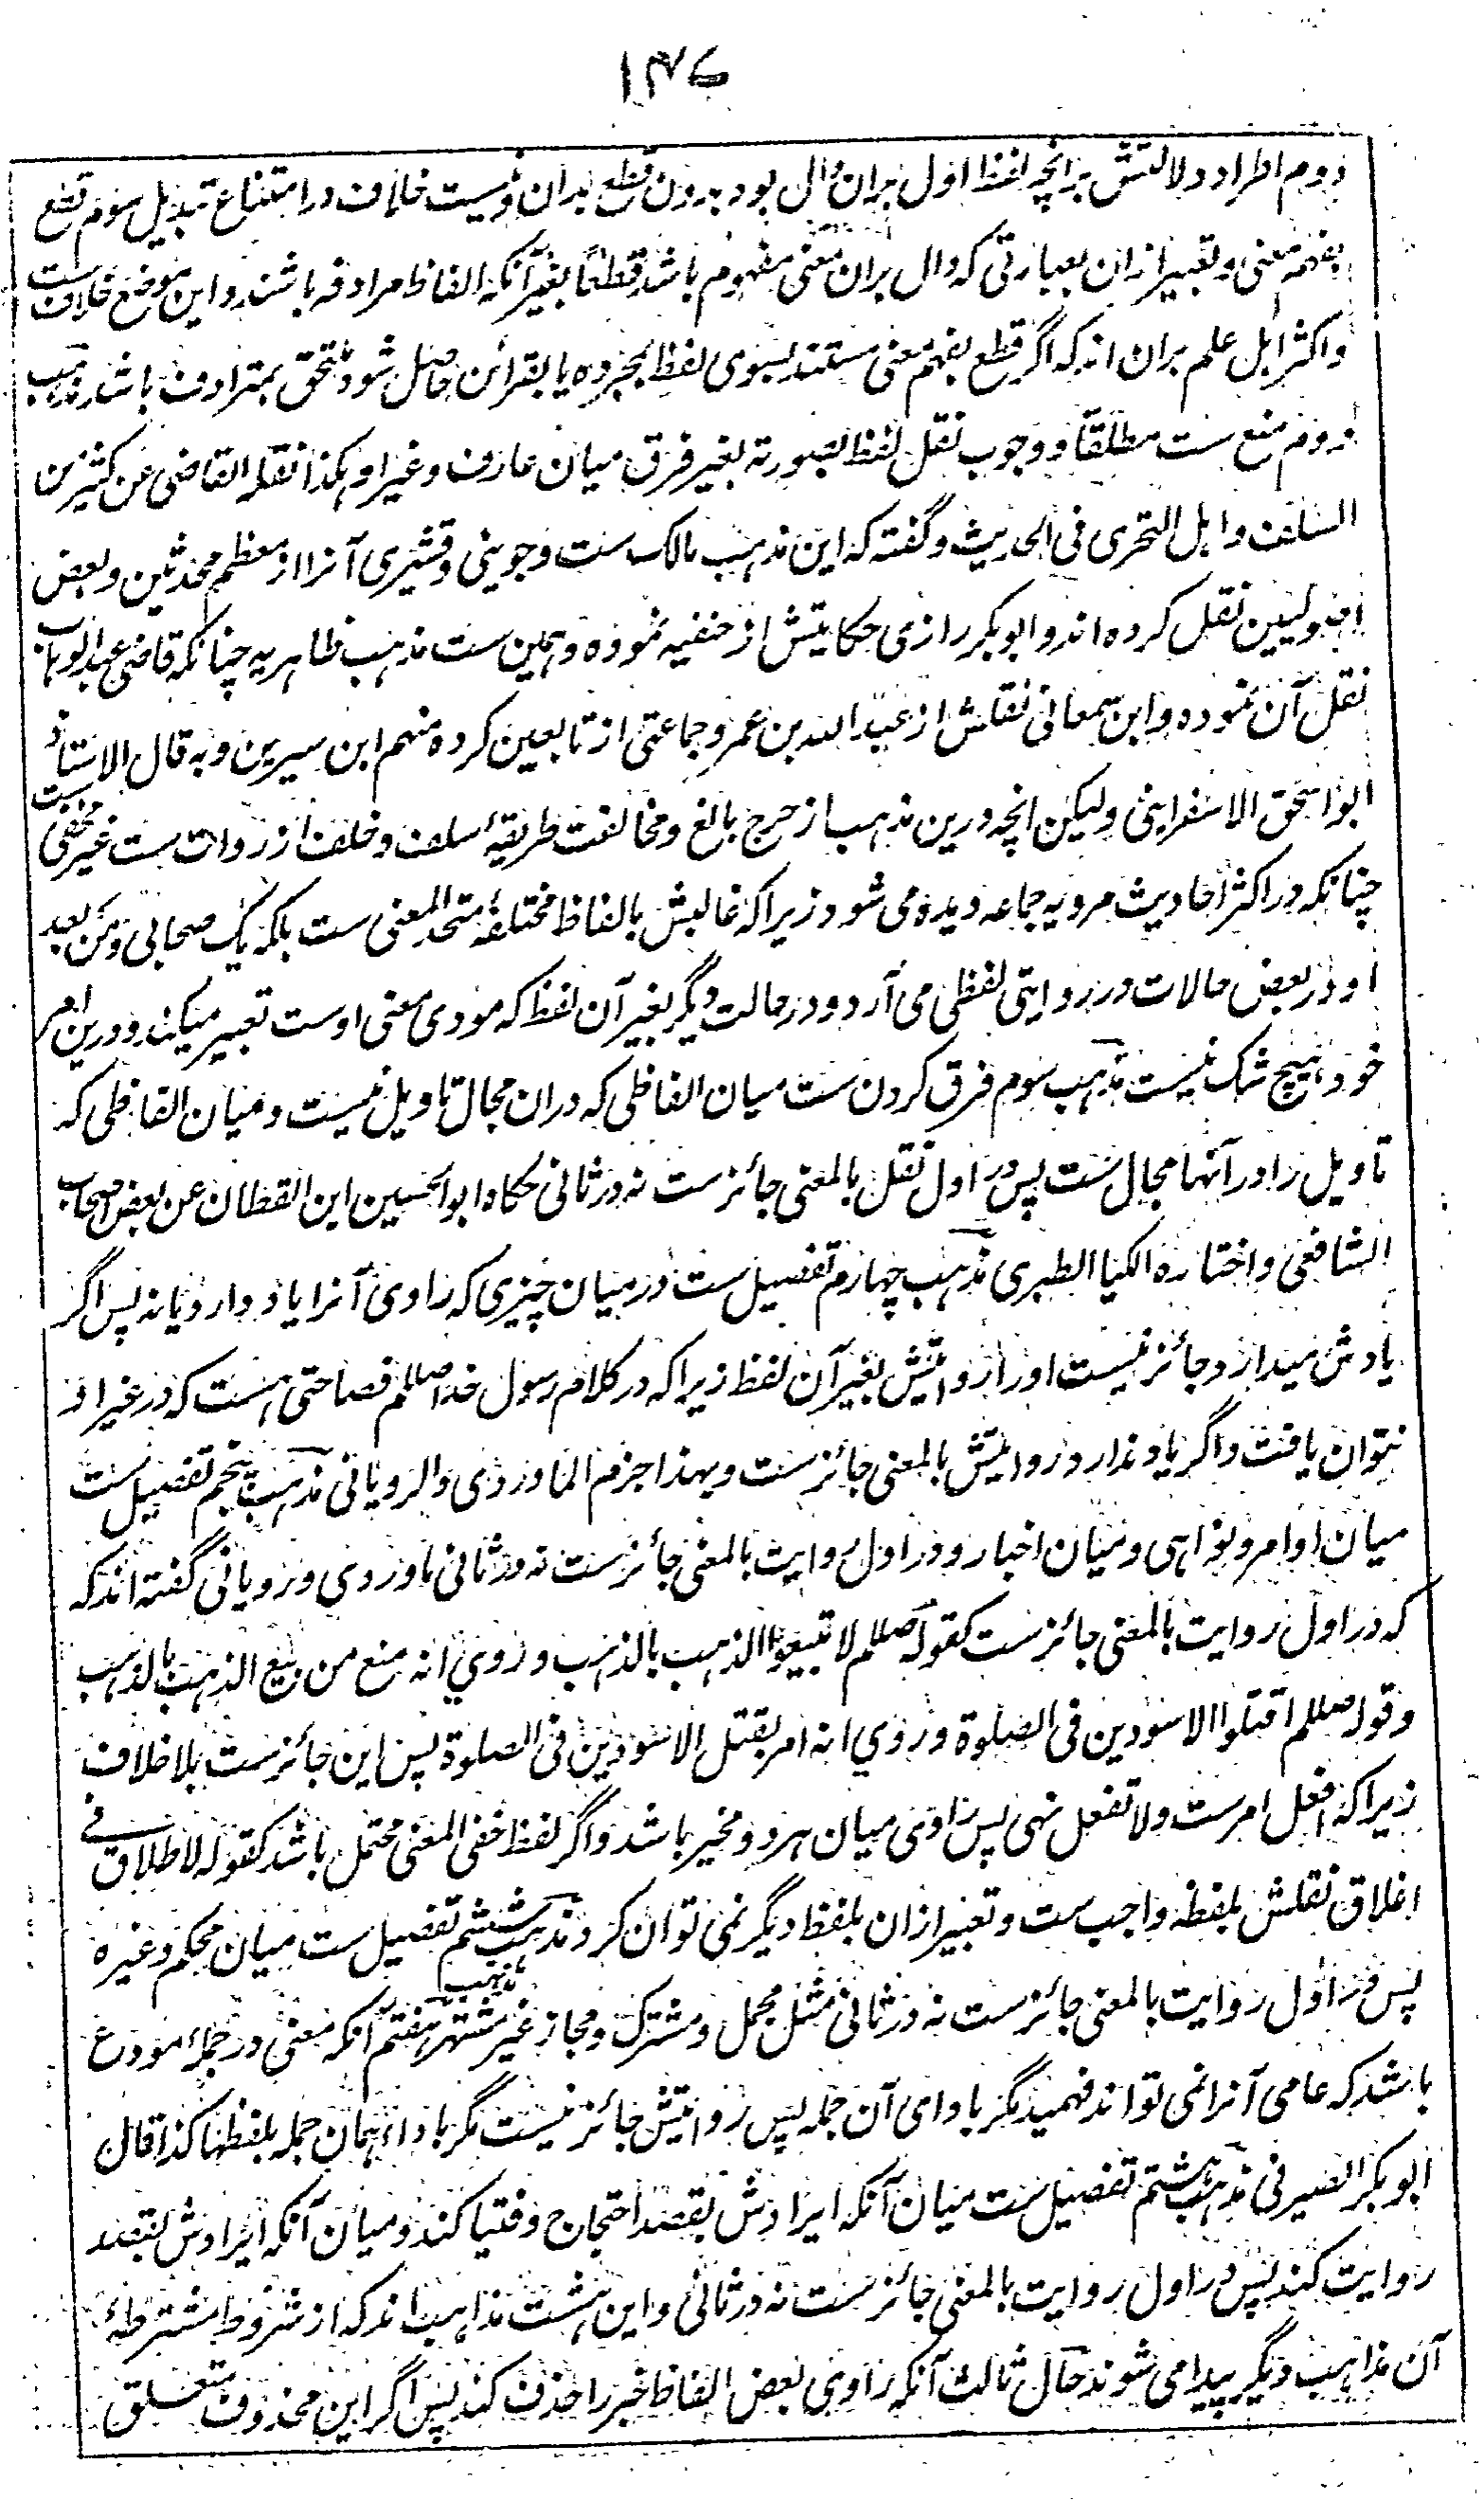 ۱۴۷
دوم اطراد دلالتش برانچه لفظ اول بران دال بود بدون قطع بدان و نیست خلاف در امتناع تبدیل سوم قطع
بفهم معنی و تعبیر ازان بعبارتی که دال بران معنی مفهوم باشد قطعاً بغیر آنکه الفاظ مرادفه باشند و این موضع خلاف ست
و اکثر اہل علم بران اند که اگر قطع بفهم معنی مستند بسوی لفظ بمجرده یا بقرائن حاصل شود ملتحق بمترادف باشد مذہب
دوم منع ست مطلقاً و وجوب نقل لفظ بصورته بغیر فرق میان عارف و غیر او ہکذا نقله القاضی عن کثیر من
السلف و اہل التحری فی الحدیث و گفته که این مذہب مالک ست و جوینی و قشیری آنرا از معظم محدثین و بعض
اصولیین نقل کرده اند و ابو بکر رازی حکایتش از حنفیه نموده و ہمین ست مذہب ظاہریه چنانکه قاضی عبدالوہاب
نقل آن نموده و ابن سمعانی نقلش از عبد الله بن عمر و جماعتی از تابعین کرده منهم ابن سیرین و به قال الاستاذ
ابو اسحق الاسفراینی ولیکن انچه درین مذہب از حرج بالغ و مخالفت طریقۂ سلف و خلف از روات ست غیر مخفی ست
چنانکه در اکثر احادیث مرویه جماعه دیده می شود زیرا که غالبش بالفاظ مختلفۂ متحد المعنی ست بلکه یک صحابی و من بعد
او در بعض حالات در روایتی لفظی می آرد و در حالت دیگر بغیر آن لفظ که مودی معنی اوست تعبیر میکند و درین امر
خود ہیچ شک نیست مذہب سوم فرق کردن ست میان الفاظی که دران مجال تاویل نیست و میان الفاظی که
تاویل را در آنها مجال ست پس در اول نقل بالمعنی جائز ست نه در ثانی حکاه ابو الحسین ابن القطان عن بعض اصحاب
الشافعی و اختاره الکیا الطبری مذہب چہارم تفصیل ست در میان چیزی که راوی آنرا یاد دارد یا نه پس اگر
یادش میدارد جائز نیست او را روایتش بغیر آن لفظ زیرا که در کلام رسول خدا صللم فصاحتی ہست که در غیر او
نتوان یافت و اگر یاد ندارد روایتش بالمعنی جائز ست و بهذا جزم الماوردی والرویانی مذہب پنجم تفصیل ست
میان اوامر و نواہی و میان اخبار و در اول روایت بالمعنی جائز ست نه در ثانی ماوردی و رویانی گفته اند که
که در اول روایت بالمعنی جائز ست کقوله صللم لا تبیعوا الذہب بالذہب و روي انه منع من بیع الذہب بالذہب
و قوله صللم اقتلوا الاسودین فی الصلوة و روي انه امر بقتل الاسودین فی الصلوة پس این جائز ست بلا خلاف
زیرا که افعل امر ست ولا تفعل نہی پس راوی میان ہر دو مخیر باشد و اگر لفظ خفی المعنی محتمل باشد کقوله لا طلاق فی
اغلاق نقلش بلفظه واجب ست و تعبیر ازان بلفظ دیگر نمی توان کرد مذہب ششم تفصیل ست میان محکم و غیره
پس در اول روایت بالمعنی جائز ست نه در ثانی مثل مجمل و مشترک و مجاز غیر مشتهر مذہب ہفتم آنکه معنی در جملۂ مودع
باشد که عامی آنرا نمی تواند فهمید مگر باداي آن جمله پس روایتش جائز نیست مگر باداء ہمان جمله بلفظها کذا قال
ابو بکر الصیرفی مذہب ہشتم تفصیل ست میان آنکه ایرادش بقصد احتجاج و فتیا کند و میان آنکه ایرادش بقصد
روایت کند پس در اول روایت بالمعنی جائز ست نه در ثانی و این ہشت مذاہب اند که از شروط مشترطۂ
آن مذاہب دیگر پیدا می شوند حال ثالث آنکه راوی بعض الفاظ خبر را حذف کند پس اگر این محذوف متعلق